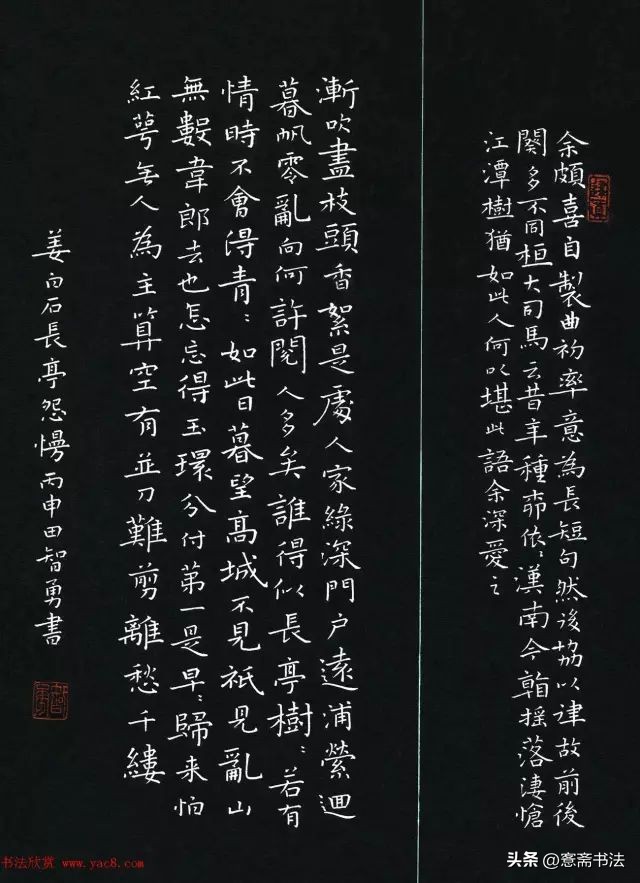 余頗喜自製曲初率意為長短句然後協以律故前後
闋多不同桓大司馬云昔年種茆依：漢南今翰摇落凄愴
江潭樹猶如此人何以堪此語余深愛之
漸吹盡枝頭香絮是處人家綠深門户遠浦縈迴
暮帆零亂向何許閱人多矣誰得似長亭樹：若有
情時不會得青：如此日暮望高城不見衹見亂山
無數韋郎去也怎忘得玉環分付第一是早：歸来怕
紅萼無人為主算空有並刀難剪離愁千縷
姜白石長亭怨慢丙申田智勇書
书法欣赏 www.yac8.com
头条@憲斋书法